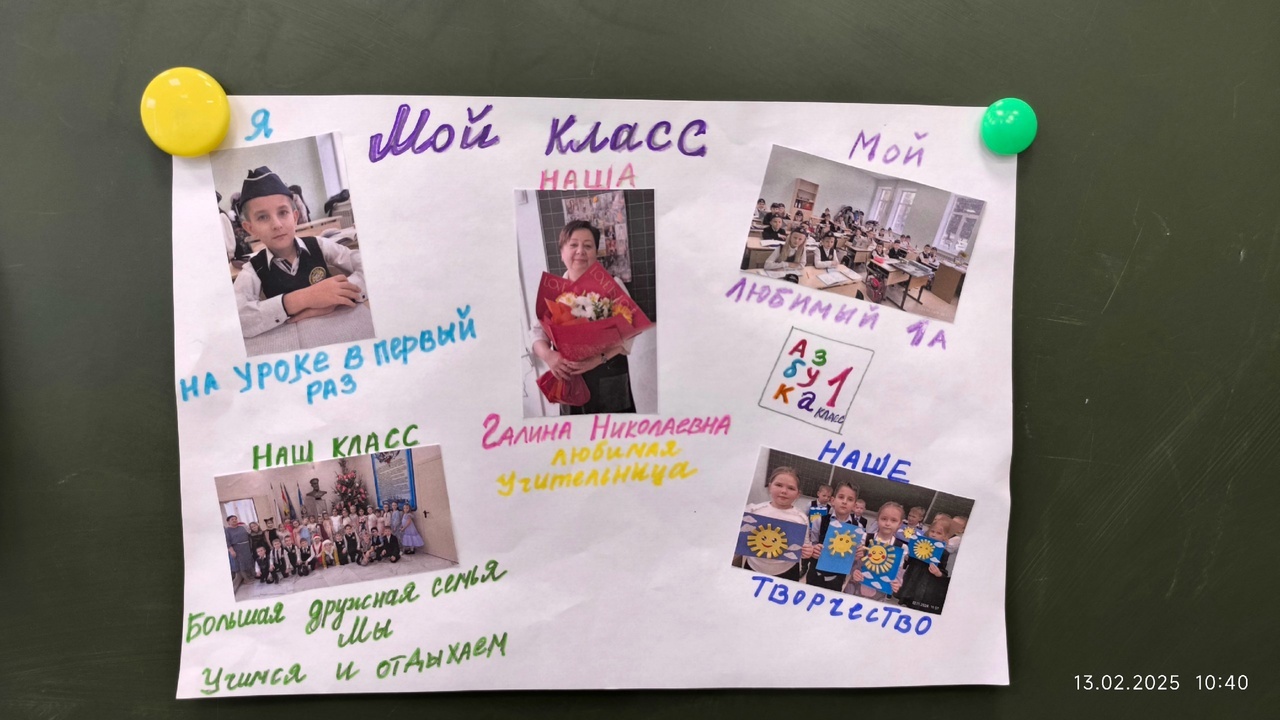 Я
Мой класс
НАША
Мой
НА УРОКЕ В ПЕРВЫЙ
РАЗ
ЛЮБИМЫЙ 1А
АЗ
БУ1
КА КЛАСС
ГАЛИНА НИКОЛАЕВНА
любимая
учительница
НАШ КЛАСС
НАШЕ
Большая дружная семья
Мы
Учимся и отдыхаем
ТВОРЧЕСТВО
13.02.2025 10:40